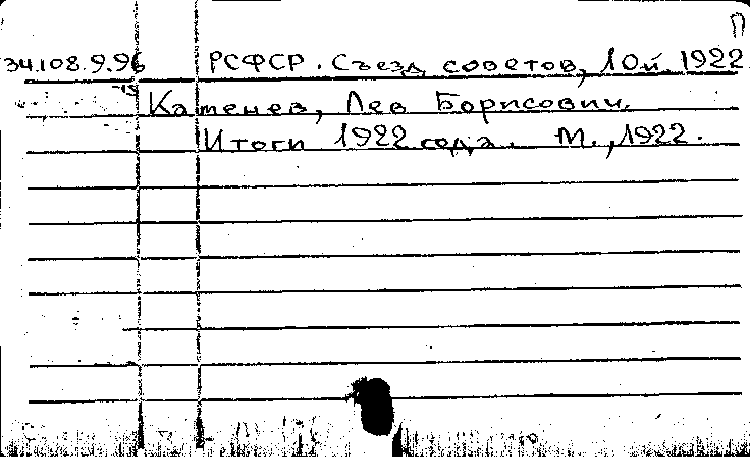 П
34.108.9.96 РСФСР. Съезд советов, 10й. 1922
Каменев, Лев Борисович.
Итоги 1922 года. М., 1922.